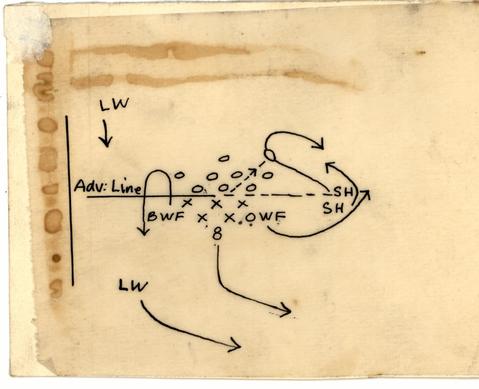 LW
Adv: Line
SH
SH
BWF
OWF
8
LW